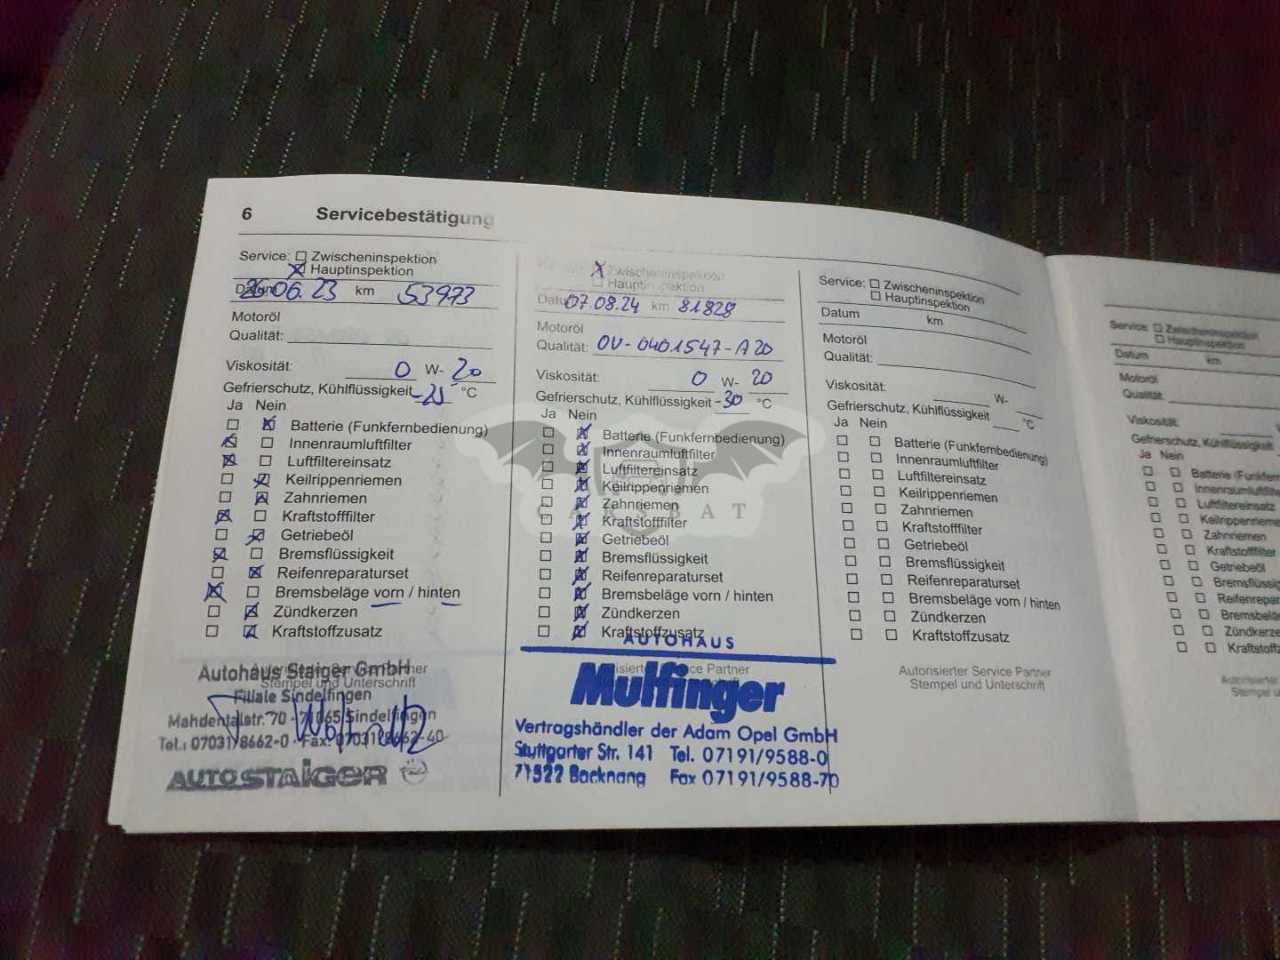 6 Servicebestätigung
Service: Zwischeninspektion
Hauptinspektion
Datum 26.06.23 km 53973
Motoröl
Qualität:
Viskosität: 0 W- 20
Gefrierschutz, Kühlflüssigkeit -25 °C
Ja Nein
Batterie (Funkfernbedienung)
Innenraumluftfilter
Luftfiltereinsatz
Keilrippenriemen
Zahnriemen
Kraftstofffilter
Getriebeöl
Bremsflüssigkeit
Reifenreparaturset
Bremsbeläge vorn / hinten
Zündkerzen
Kraftstoffzusatz
Autohaus Staiger GmbH
Stempel und Unterschrift
Filiale Sindelfingen
Mahdentalstr. 70 - 71065 Sindelfingen
Tel.: 07031/8662-0 · Fax: 07031/8662-40
AUTO STAIGER
Zwischeninspektion
Hauptinspektion
Datum 07.08.24 km 81828
Motoröl
Qualität: OV-0401547-A20
Viskosität: 0 W- 20
Gefrierschutz, Kühlflüssigkeit -30 °C
Ja Nein
Batterie (Funkfernbedienung)
Innenraumluftfilter
Luftfiltereinsatz
Keilrippenriemen
Zahnriemen
CARSBAT
Kraftstofffilter
Getriebeöl
Bremsflüssigkeit
Reifenreparaturset
Bremsbeläge vorn / hinten
Zündkerzen
Kraftstoffzusatz
AUTOHAUS
Service Partner
Mulfinger
Vertragshändler der Adam Opel GmbH
Stuttgarter Str. 141 Tel. 07191/9588-0
71522 Backnang Fax 07191/9588-70
Service: Zwischeninspektion
Hauptinspektion
Datum km
Motoröl
Qualität:
Viskosität: W-
Gefrierschutz, Kühlflüssigkeit °C
Ja Nein
Batterie (Funkfernbedienung)
Innenraumluftfilter
Luftfiltereinsatz
Keilrippenriemen
Zahnriemen
Kraftstofffilter
Getriebeöl
Bremsflüssigkeit
Reifenreparaturset
Bremsbeläge vorn / hinten
Zündkerzen
Kraftstoffzusatz
Autorisierter Service Partner
Stempel und Unterschrift
Service: Zwischeninspektion
Hauptinspektion
Datum km
Motoröl
Qualität:
Viskosität: W-
Gefrierschutz, Kühlflüssigkeit
Ja Nein
Batterie (Funkfern
Innenraumluftfilte
Luftfiltereinsatz
Keilrippenriemen
Zahnriemen
Kraftstofffilter
Getriebeöl
Bremsflüssig
Reifenrepar
Bremsbelä
Zündkerze
Kraftstoffz
Autorisierter
Stempel